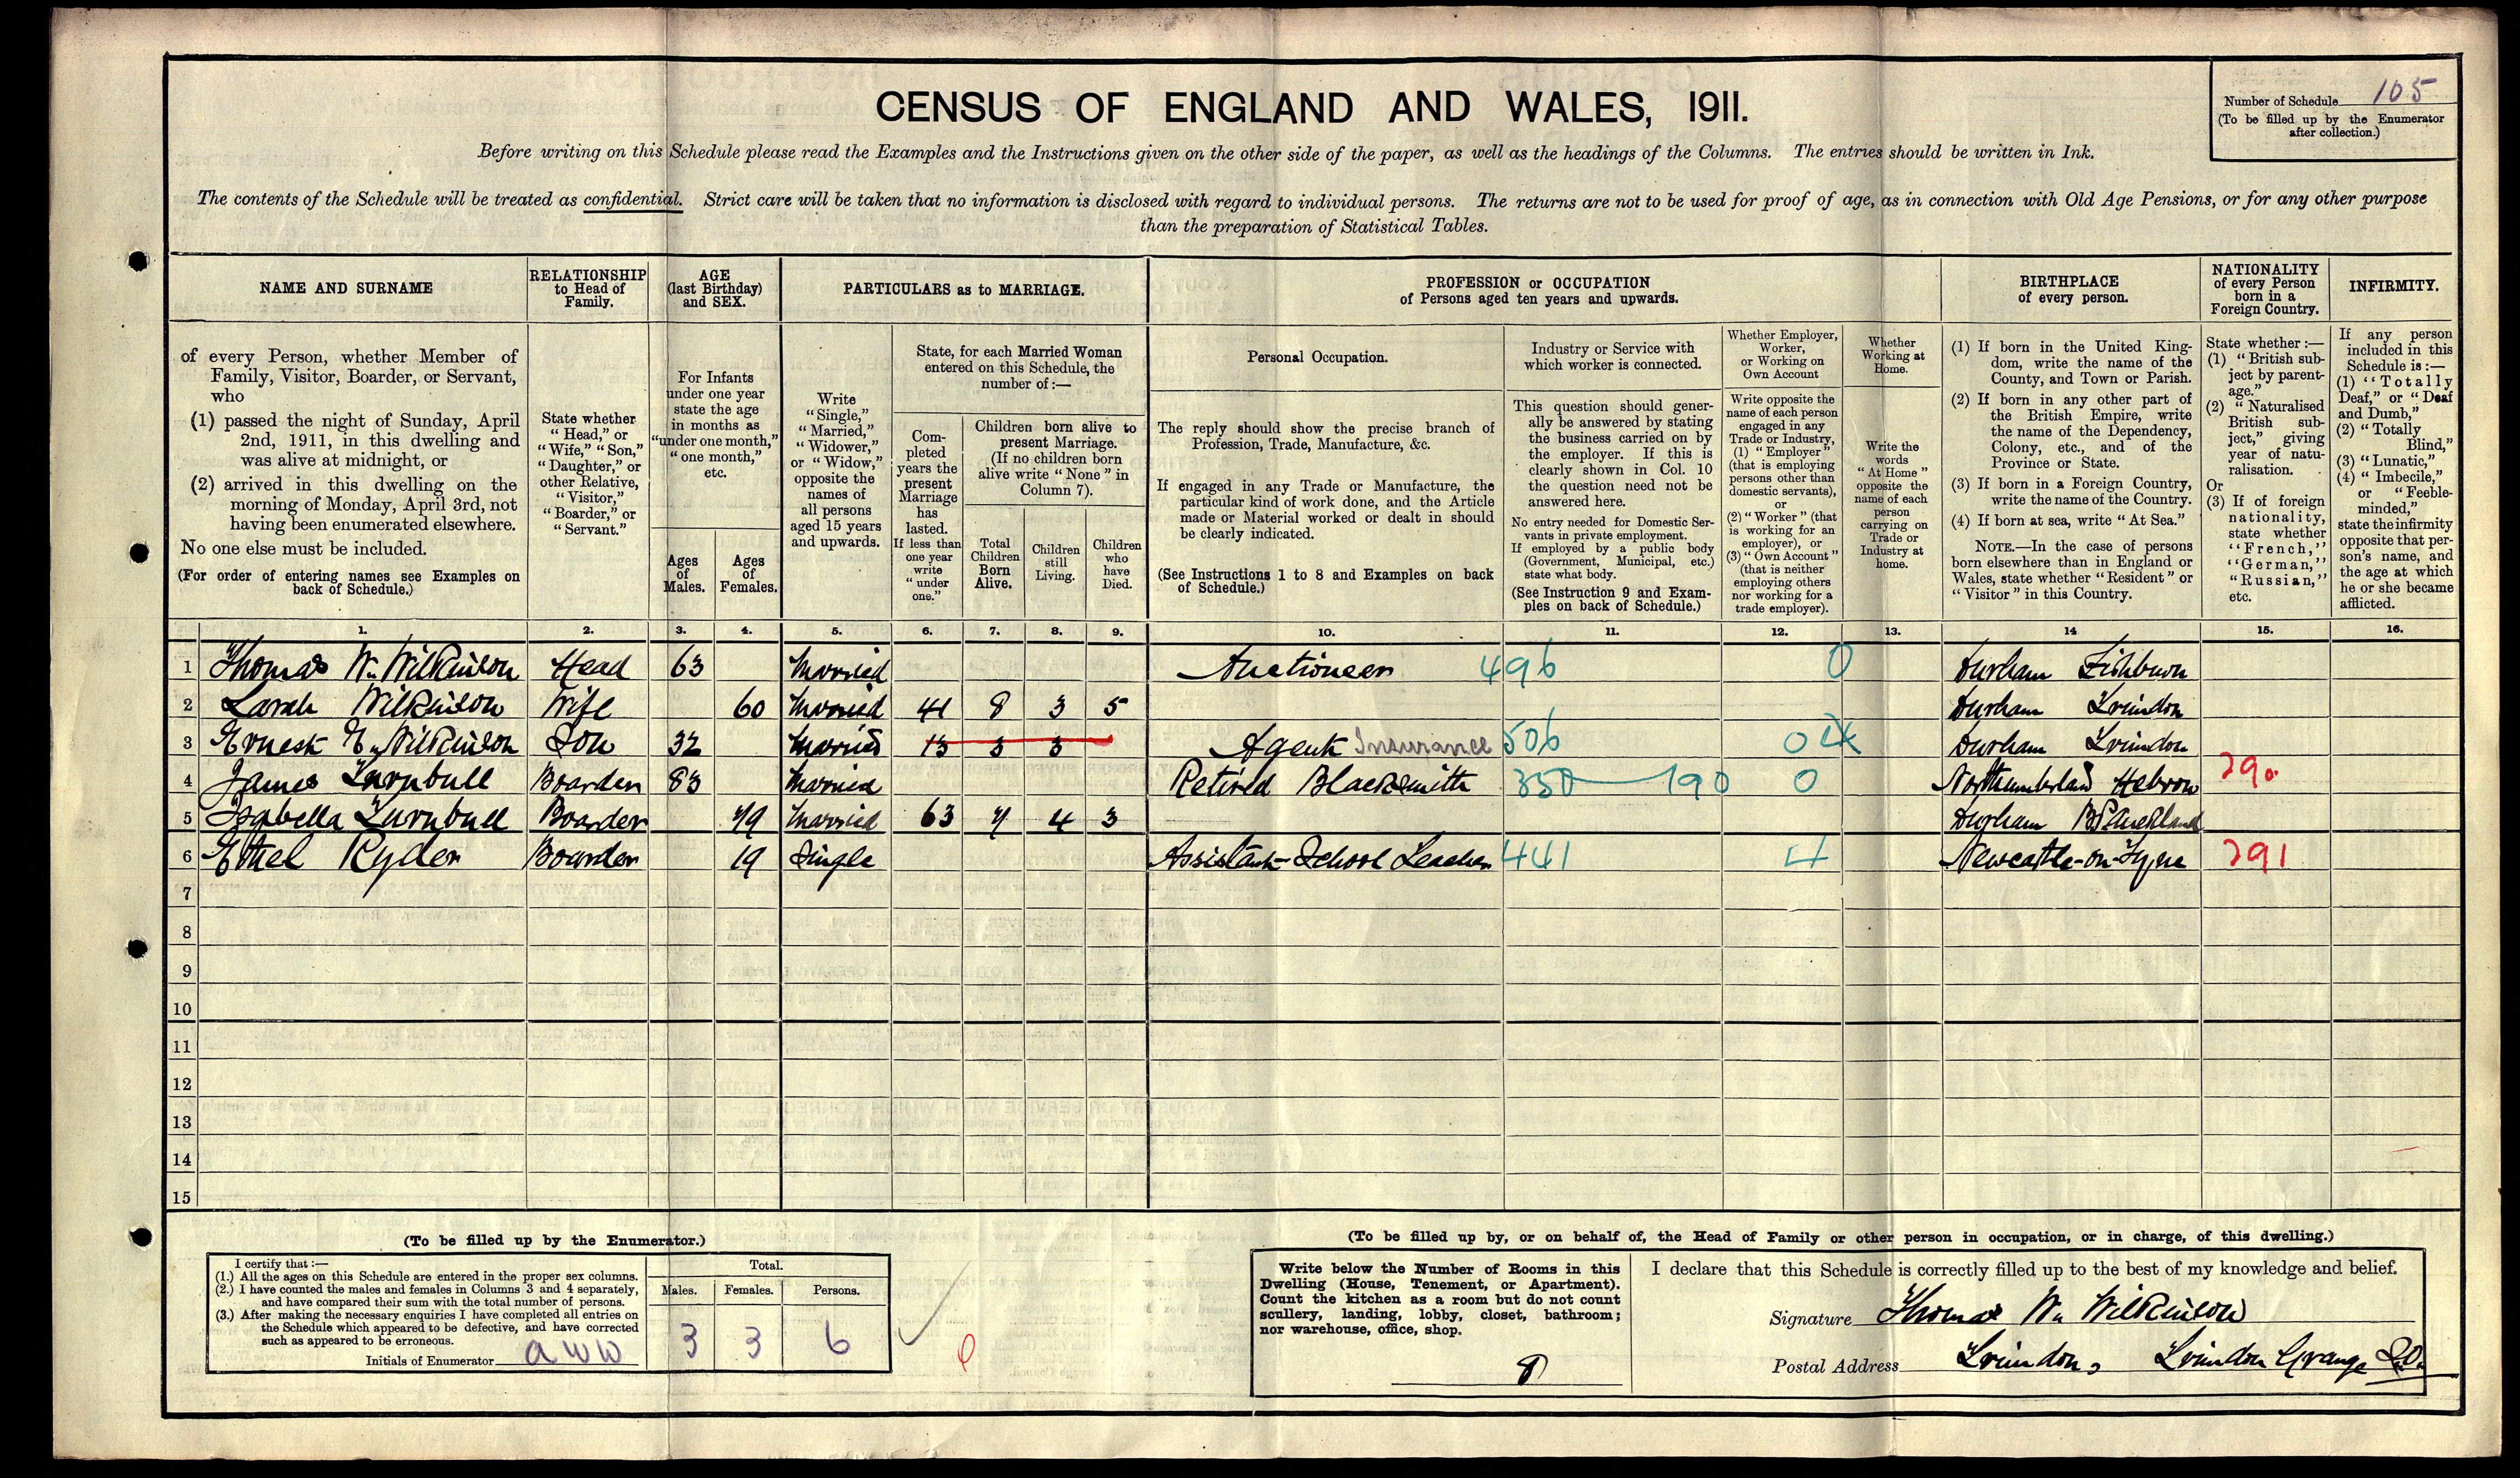 CENSUS OF ENGLAND AND WALES, 1911.
Number of Schedule 105
(To be filled up by the Enumerator
after collection.)
Before writing on this Schedule please read the Examples and the Instructions given on the other side of the paper, as well as the headings of the Columns. The entries should be written in Ink.
The contents of the Schedule will be treated as confidential. Strict care will be taken that no information is disclosed with regard to individual persons. The returns are not to be used for proof of age, as in connection with Old Age Pensions, or for any other purpose
than the preparation of Statistical Tables.
NAME AND SURNAME
of every Person, whether Member of
Family, Visitor, Boarder, or Servant,
who
(1) passed the night of Sunday, April
2nd, 1911, in this dwelling and
was alive at midnight, or
(2) arrived in this dwelling on the
morning of Monday, April 3rd, not
having been enumerated elsewhere.
No one else must be included.
(For order of entering names see Examples on
back of Schedule.)
RELATIONSHIP
to Head of
Family.
State whether
"Head," or
"Wife," "Son,"
"Daughter," or
other Relative,
"Visitor,"
"Boarder," or
"Servant."
AGE
(last Birthday)
and SEX.
For Infants
under one year
state the age
in months as
"under one month,"
"one month,"
etc.
Ages
of
Males.
Ages
of
Females.
PARTICULARS as to MARRIAGE.
Write
"Single,"
"Married,"
"Widower,"
or "Widow,"
opposite the
names of
all persons
aged 15 years
and upwards.
State, for each Married Woman
entered on this Schedule, the
number of:—
Com-
pleted
years the
present
Marriage
has
lasted.
If less than
one year
write
"under
one."
Children born alive to
present Marriage.
(If no children born
alive write "None" in
Column 7).
Total
Children
Born
Alive.
Children
still
Living.
Children
who
have
Died.
PROFESSION or OCCUPATION
of Persons aged ten years and upwards.
Personal Occupation.
The reply should show the precise branch of
Profession, Trade, Manufacture, &c.
If engaged in any Trade or Manufacture, the
particular kind of work done, and the Article
made or Material worked or dealt in should
be clearly indicated.
(See Instructions 1 to 8 and Examples on back
of Schedule.)
Industry or Service with
which worker is connected.
This question should gener-
ally be answered by stating
the business carried on by
the employer. If this is
clearly shown in Col. 10
the question need not be
answered here.
No entry needed for Domestic Ser-
vants in private employment.
If employed by a public body
(Government, Municipal, etc.)
state what body.
(See Instruction 9 and Exam-
ples on back of Schedule.)
Whether Employer,
Worker,
or Working on
Own Account
Write opposite the
name of each person
engaged in any
Trade or Industry,
(1) "Employer"
(that is employing
persons other than
domestic servants),
or
(2) "Worker" (that
is working for an
employer), or
(3) "Own Account"
(that is neither
employing others
nor working for a
trade employer).
Whether
Working at
Home.
Write the
words
"At Home"
opposite the
name of each
person
carrying on
Trade or
Industry at
home.
BIRTHPLACE
of every person.
(1) If born in the United King-
dom, write the name of the
County, and Town or Parish.
(2) If born in any other part of
the British Empire, write
the name of the Dependency,
Colony, etc., and of the
Province or State.
(3) If born in a Foreign Country,
write the name of the Country.
(4) If born at sea, write "At Sea."
NOTE.—In the case of persons
born elsewhere than in England or
Wales, state whether "Resident" or
"Visitor" in this Country.
NATIONALITY
of every Person
born in a
Foreign Country.
State whether:—
(1) "British sub-
ject by parent-
age."
(2) "Naturalised
British sub-
ject," giving
year of natu-
ralisation.
Or
(3) If of foreign
nationality,
state whether
"French,"
"German,"
"Russian,"
etc.
INFIRMITY.
If any person
included in this
Schedule is:—
(1) "Totally
Deaf," or "Deaf
and Dumb,"
(2) "Totally
Blind,"
(3) "Lunatic,"
(4) "Imbecile,"
or "Feeble-
minded,"
state the infirmity
opposite that per-
son's name, and
the age at which
he or she became
afflicted.
1. 2. 3. 4. 5. 6. 7. 8. 9. 10. 11. 12. 13. 14 15. 16.
1 Thomas Wm Wilkinson Head 63 Married Auctioneer 496 0 Durham Fishburn
2 Sarah Wilkinson Wife 60 Married 41 8 3 5 Durham Trimdon
3 Ernest E. Wilkinson Son 32 Married 13 3 3 Agent Insurance 506 0 Durham Trimdon
4 James Turnbull Boarder 83 Married Retired Blacksmith 350 190 0 Northumberland Hebron 290
5 Isabella Turnbull Boarder 79 Married 63 7 4 3 Durham Bp Auckland
6 Ethel Ryder Boarder 19 Single Assistant School Teacher 441 Newcastle-on-Tyne 291
7
8
9
10
11
12
13
14
15
(To be filled up by the Enumerator.)
I certify that:—
(1.) All the ages on this Schedule are entered in the proper sex columns.
(2.) I have counted the males and females in Columns 3 and 4 separately,
and have compared their sum with the total number of persons.
(3.) After making the necessary enquiries I have completed all entries on
the Schedule which appeared to be defective, and have corrected
such as appeared to be erroneous.
Initials of Enumerator aww
Total.
Males. Females. Persons.
3 3 6
(To be filled up by, or on behalf of, the Head of Family or other person in occupation, or in charge, of this dwelling.)
Write below the Number of Rooms in this
Dwelling (House, Tenement, or Apartment).
Count the kitchen as a room but do not count
scullery, landing, lobby, closet, bathroom;
nor warehouse, office, shop.
8
I declare that this Schedule is correctly filled up to the best of my knowledge and belief.
Signature Thomas Wm Wilkinson
Postal Address Trimdon, Trimdon Grange S.O.